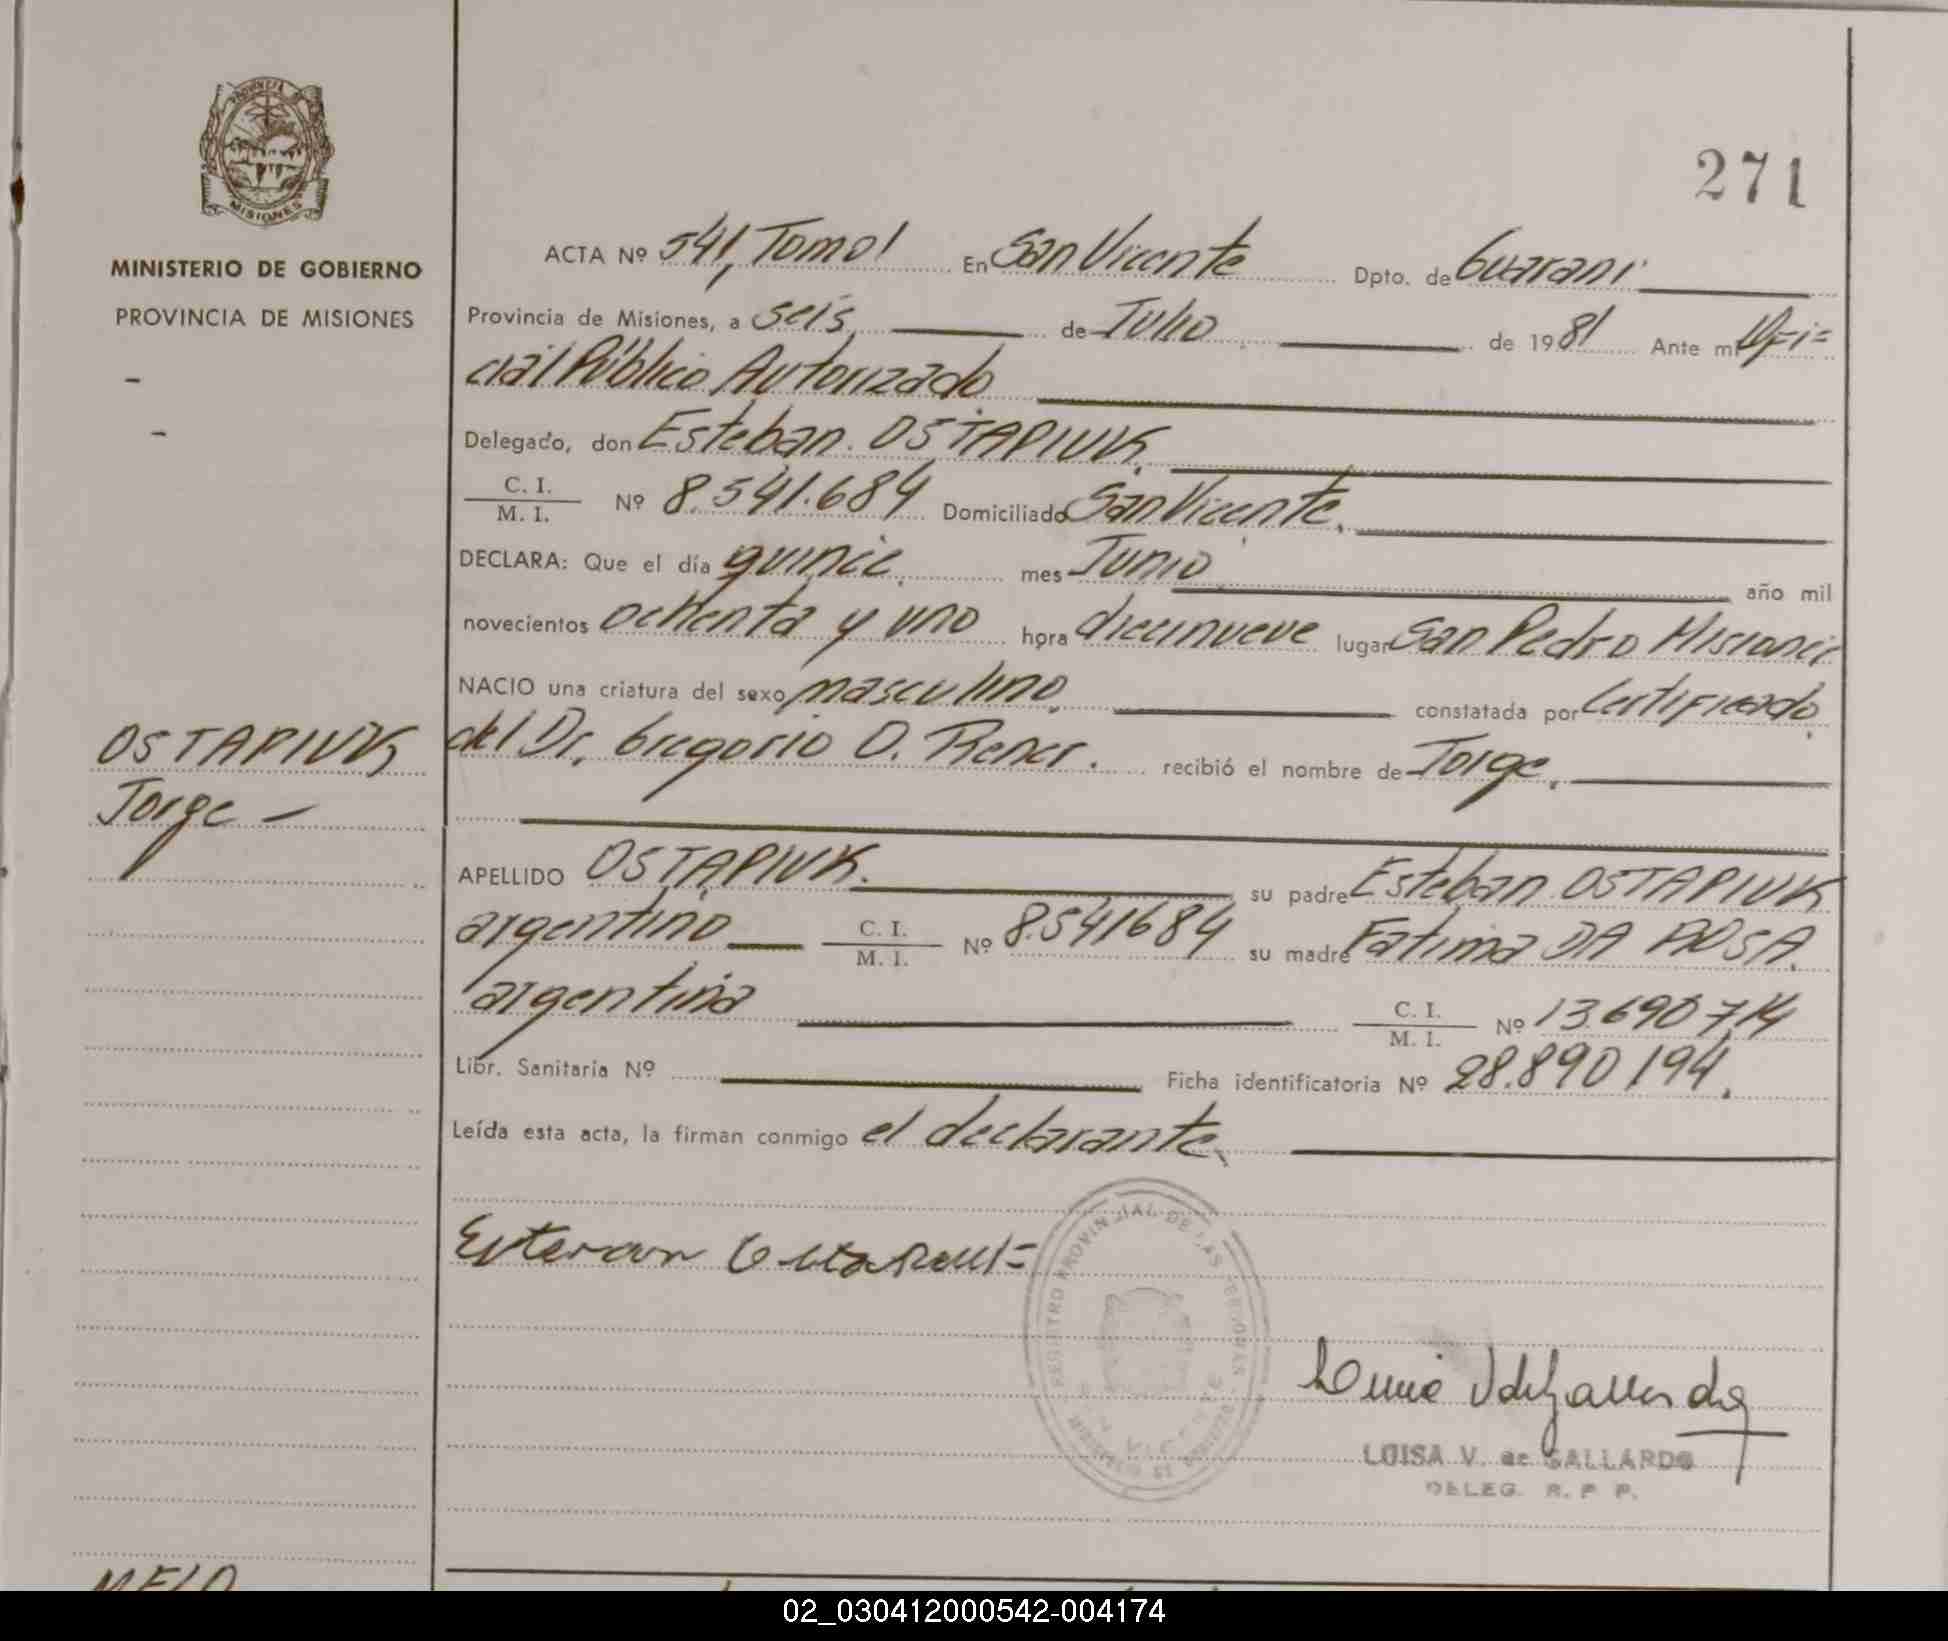 271
PROVINCIA DE
MISIONES
MINISTERIO DE GOBIERNO
PROVINCIA DE MISIONES
ACTA Nº 541, Tomo I En San Vicente Dpto. de Guaraní
Provincia de Misiones, a seis de Julio de 1981 Ante mí Ofi=
cial Público Autorizado
Delegado, don Esteban OSTAPIUK.
C. I.
M. I. Nº 8.541.684 Domiciliado San Vicente.
DECLARA: Que el día quince mes Junio año mil
novecientos ochenta y uno hora diecinueve lugar San Pedro Misiones
NACIO una criatura del sexo masculino, constatada por Certificado
del Dr. Gregorio O. recibió el nombre de Jorge.
OSTAPIUK
Jorge –
APELLIDO OSTAPIUK. su padre Esteban OSTAPIUK
argentino C. I.
M. I. Nº 8.541684 su madre Fatima DA ROSA.
argentina C. I.
M. I. Nº 13.690714
Libr. Sanitaria Nº Ficha identificatoria Nº 28.890194.
Leída esta acta, la firman conmigo el declarante.
REGISTRO PROVINCIAL DE LAS PERSONAS
LUISA V. de GALLARDO
DELEG. R. P. P.
MELO
02_030412000542-004174